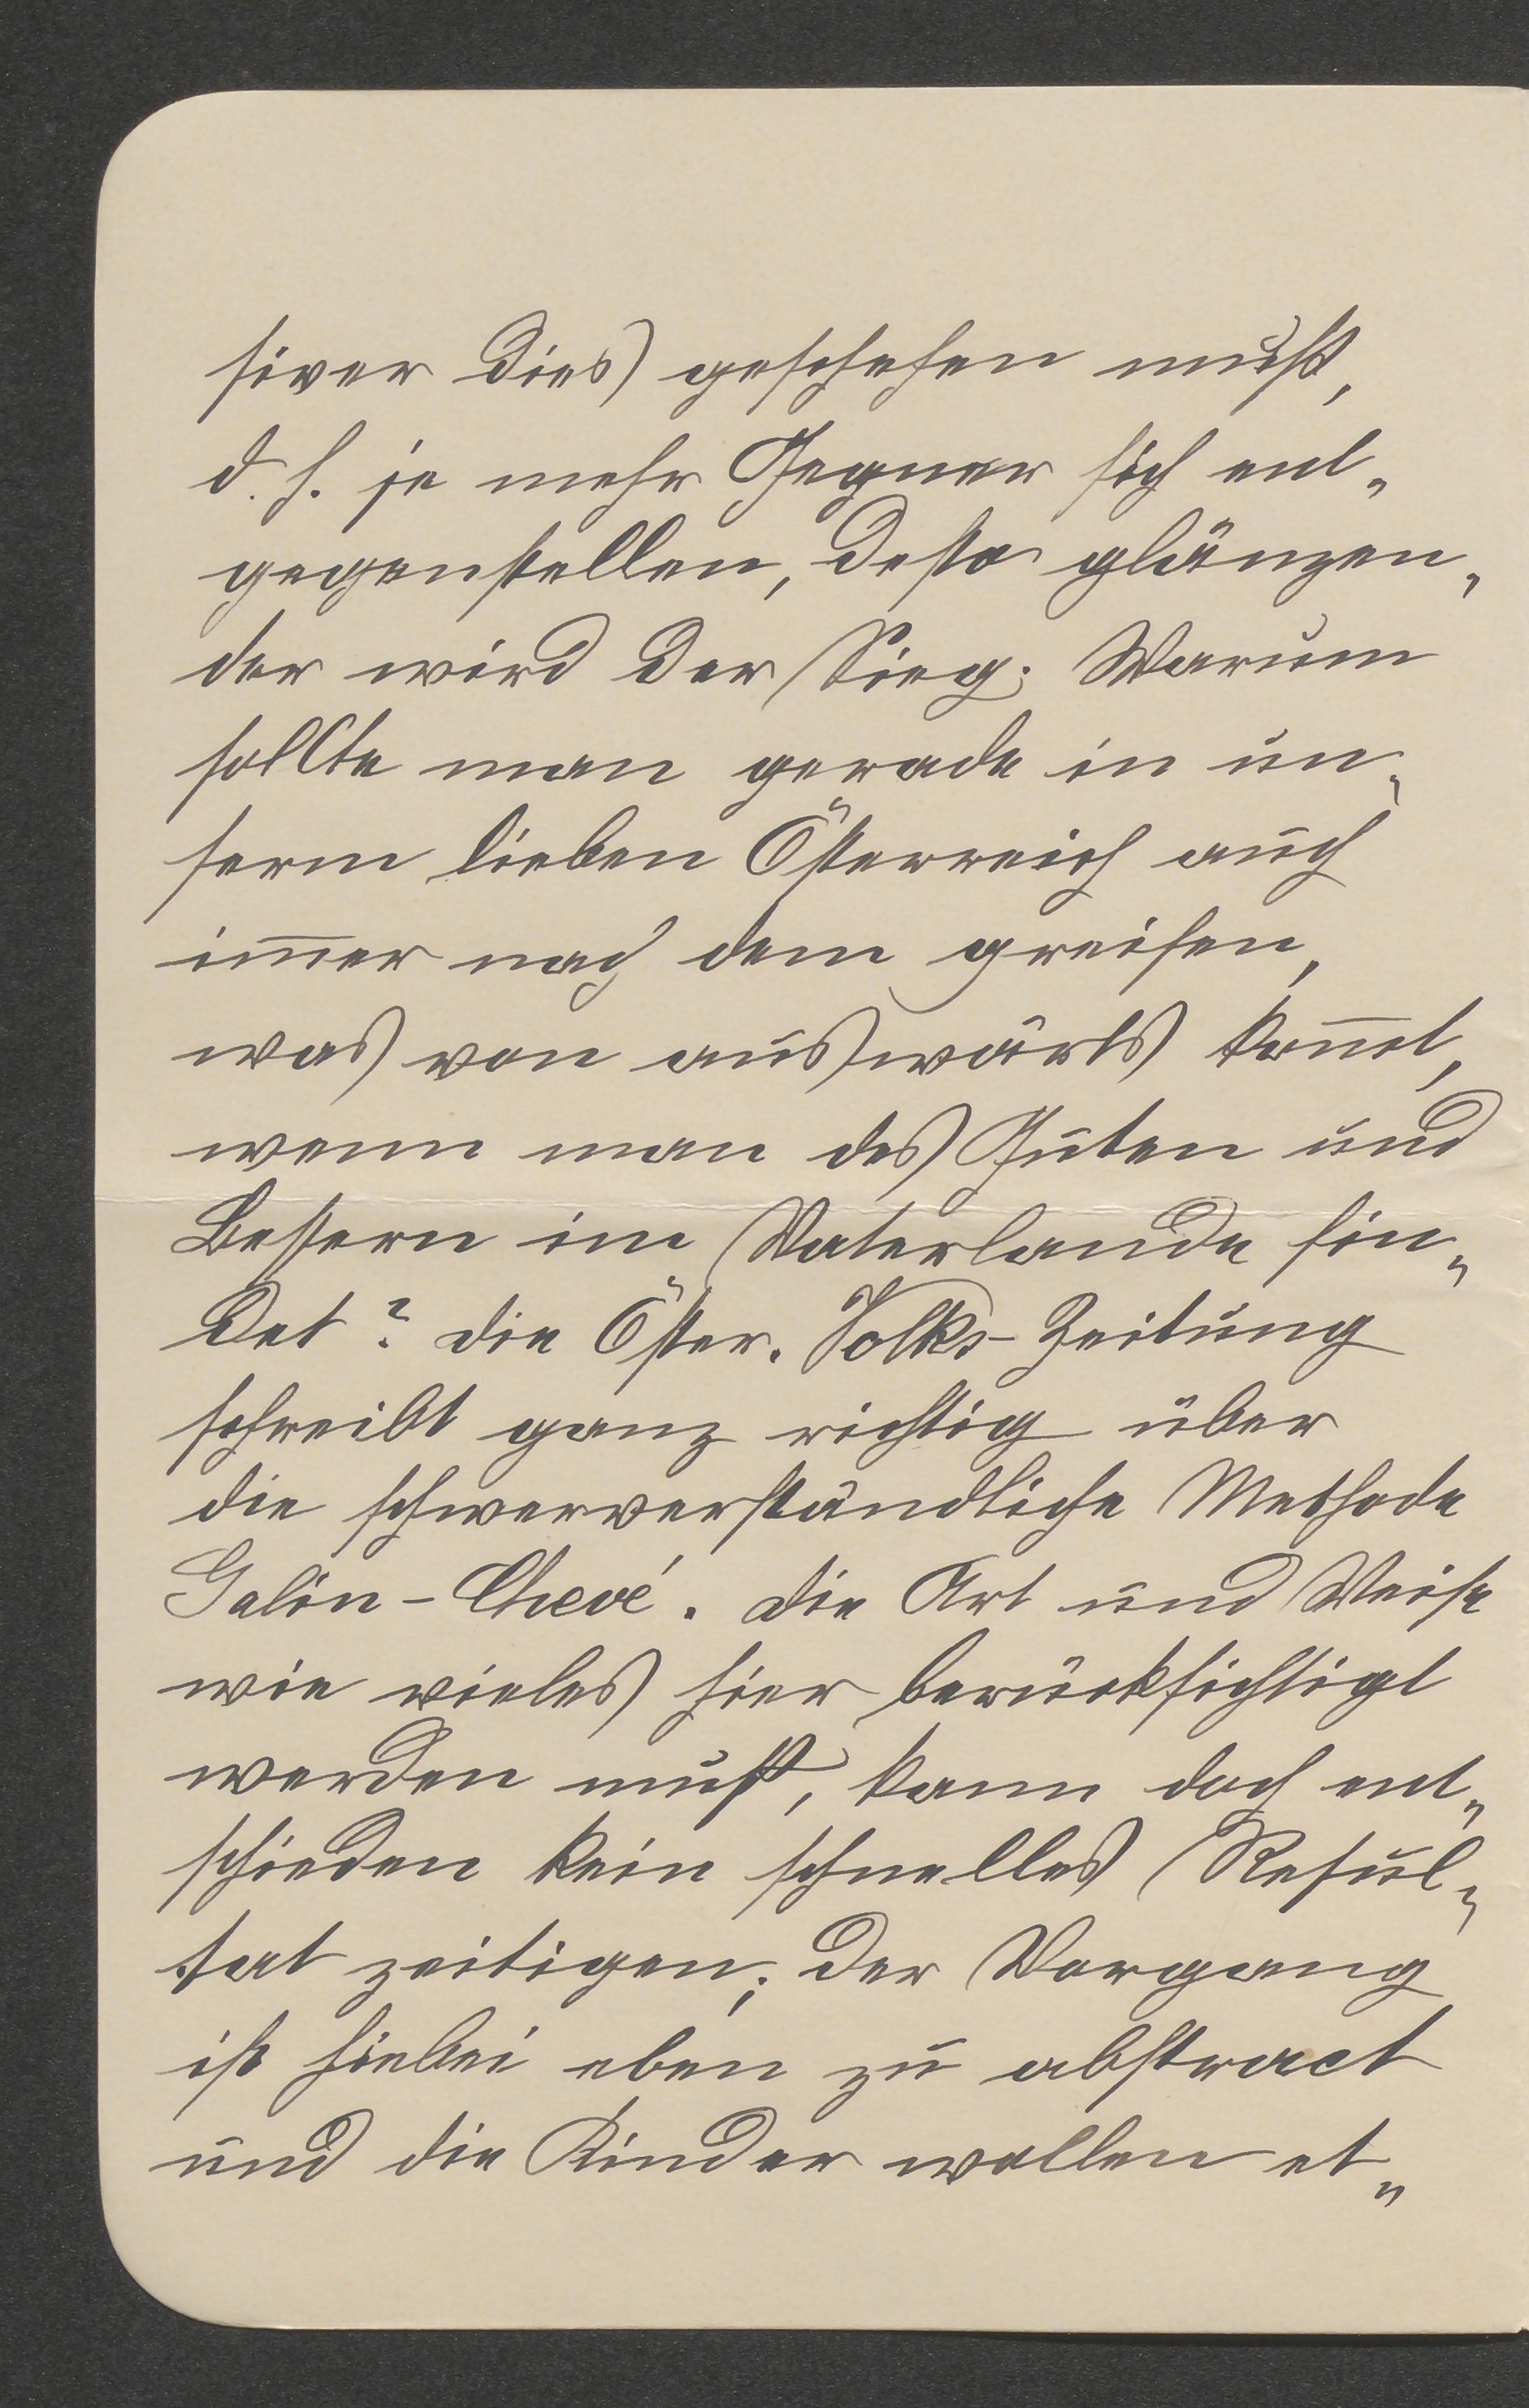 siver dies geschehen muß,
d. h. je mehr Gegner sich ent„
gegenstellen, desto glänzen„
der wird der Sieg. Warum
sollte man gerade in un„
serm lieben Österreich auch
im̅er nach dem greifen,
was von auswärts kom̅t,
wenn man des Guten und
Bessern im Vaterlande fin„
det? die Öster. Volks-Zeitung
schreibt ganz richtig über
die schwerverständliche Methode
Galin-Chevé. die Art und Weise
wie vieles hier berücksichtigt
werden muß, kann doch ent„
schieden kein schnelles Resul„
tat zeitigen; der Vorgang
ist hiebei eben zu abstract
und die Kinder wollen et„